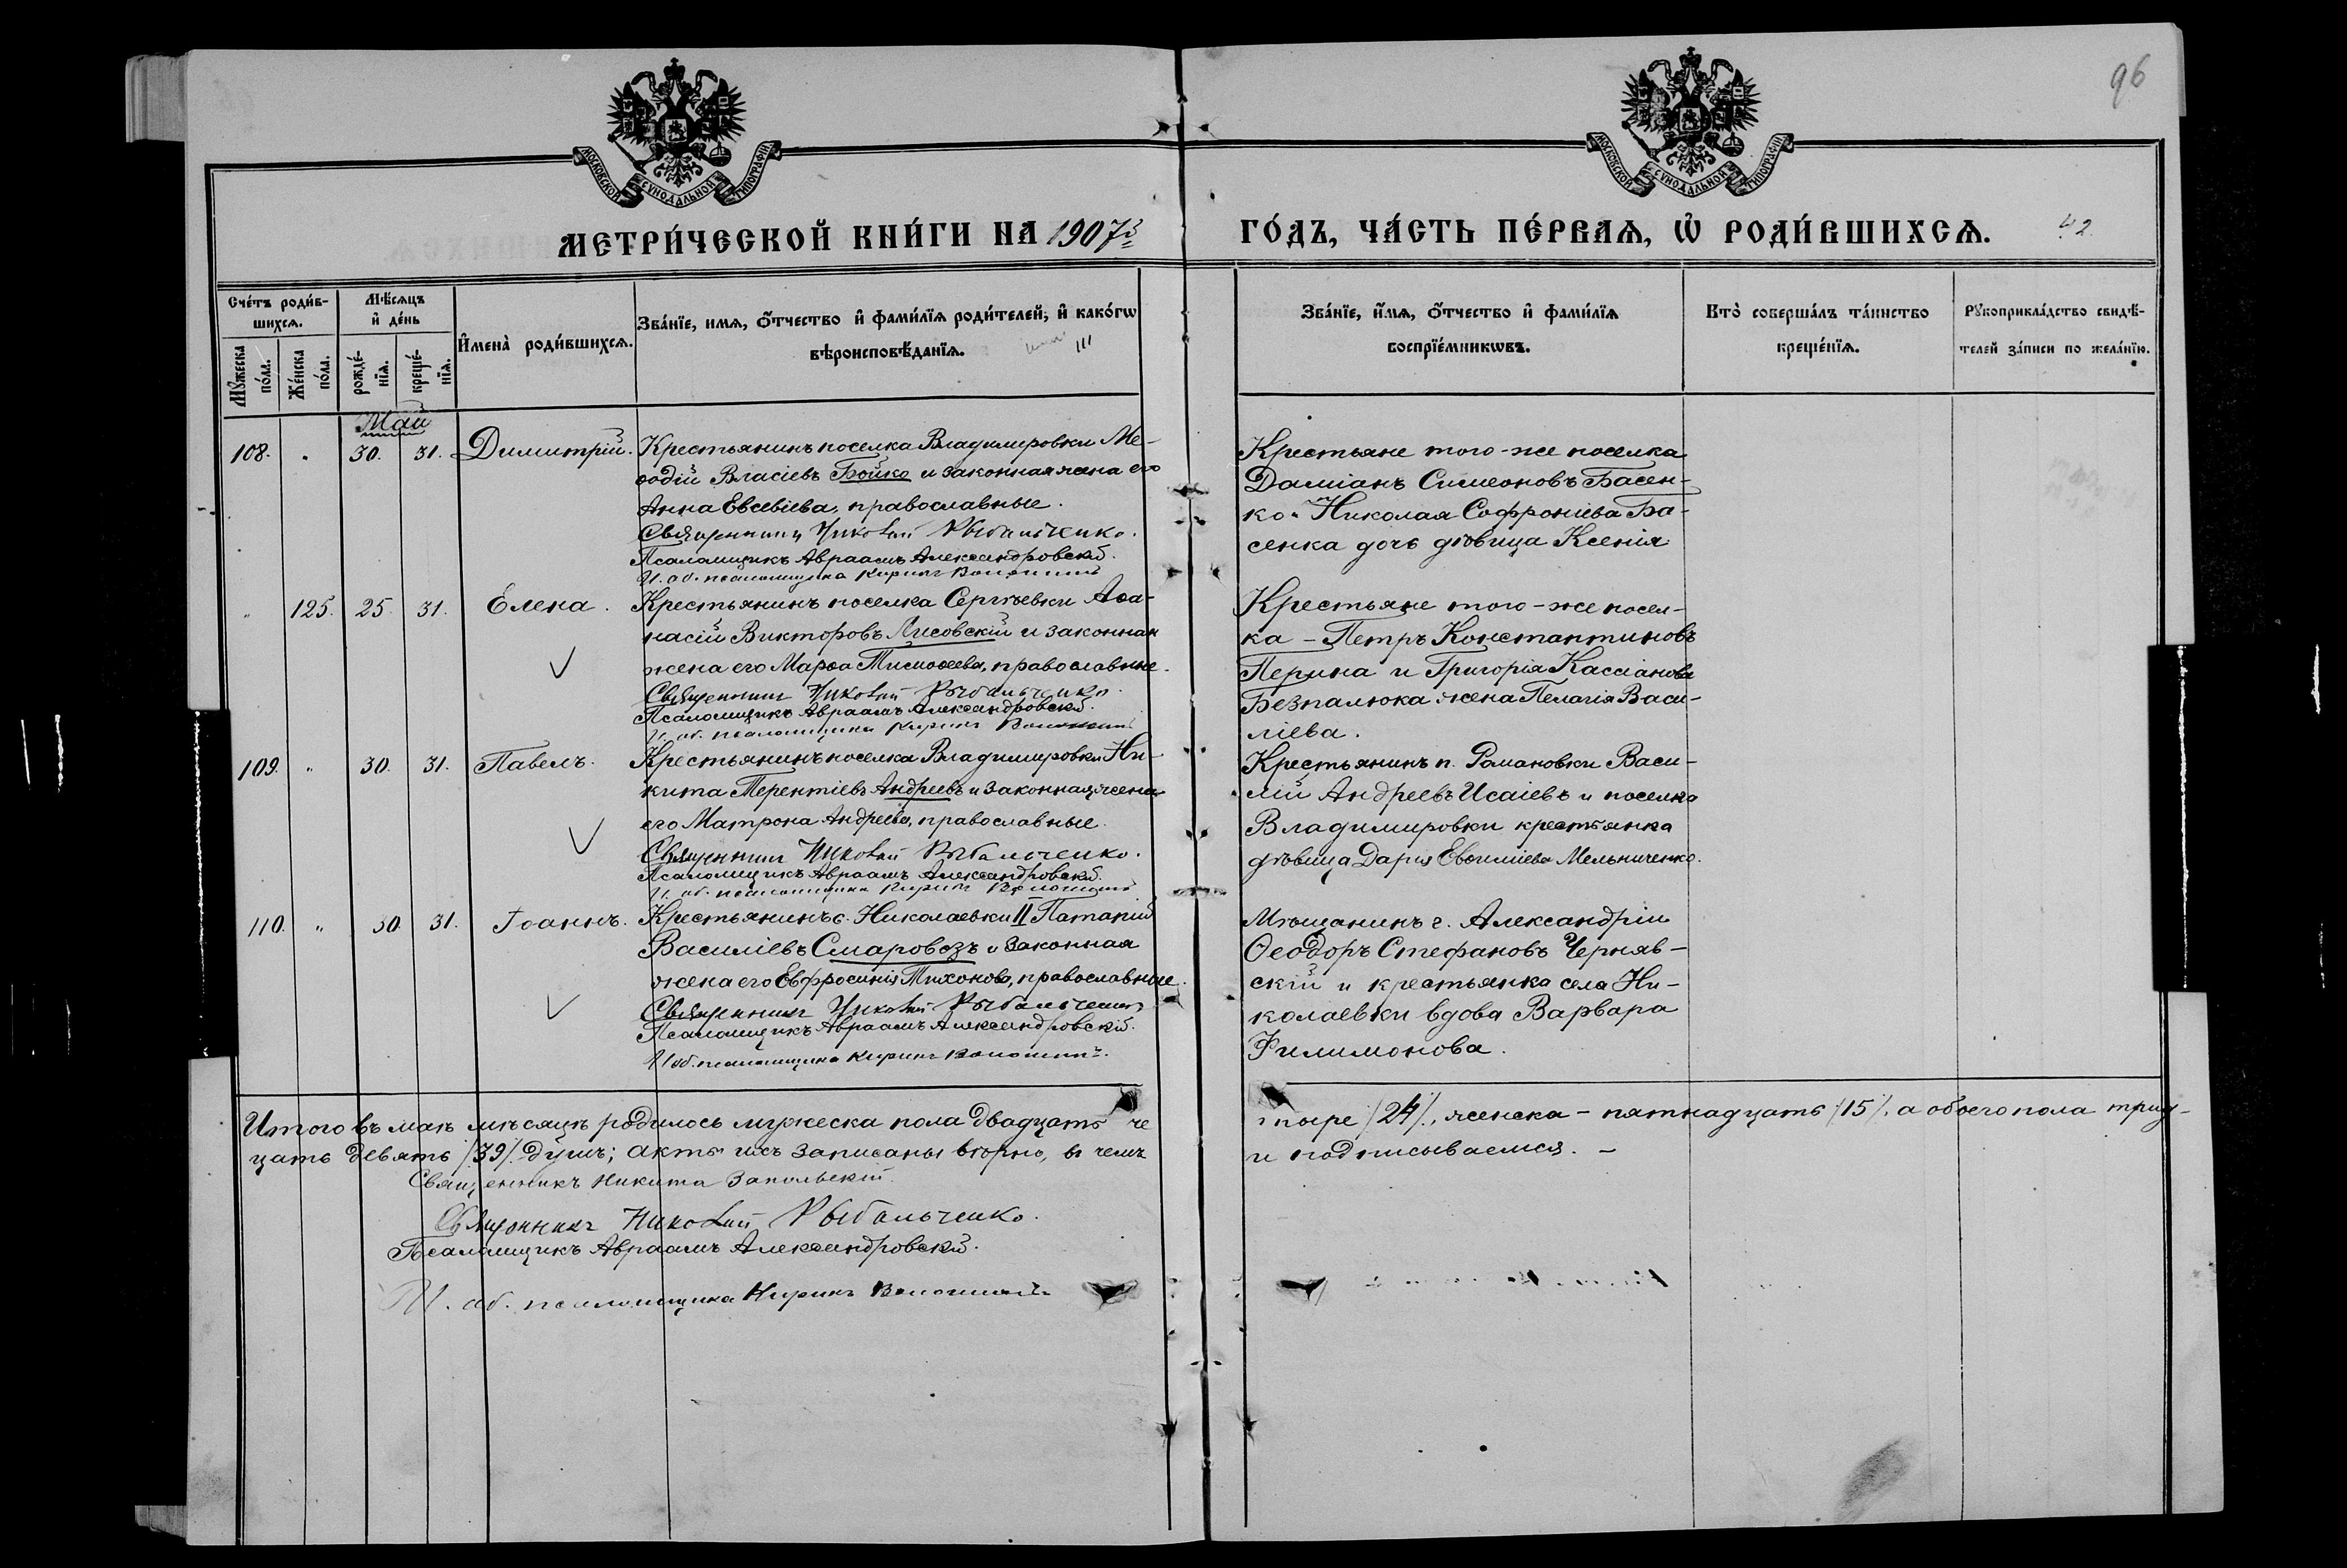 96
МОСКОВСКОЙ СУНОДАЛЬНОЙ ТИПОГРАФІИ
МОСКОВСКОЙ СУНОДАЛЬНОЙ ТИПОГРАФІИ
МЕТРИ́ЧЕСКОЙ КНИ́ГИ НА 1907й
ГО́ДЪ, ЧА́СТЬ ПЕ́РВАѦ, Ѡ҆ РОДИ́ВШИХСѦ.
42.
Сче́тъ роди́в-
шихсѧ.
Мꙋ́жеска
по́ла.
Же́нска
по́ла.
Мѣ́сѧцъ
и҆ де́нь
рожде́-
нїѧ.
креще́-
нїѧ.
И҆мена̀ роди́вшихсѧ.
Зва́нїе, имѧ, ѻ҆́тчество и҆ фами́лїѧ роди́телей, и҆ како́гѡ
вѣроисповѣ́данїѧ.
III
Зва́нїе, и҆́мѧ, ѻ҆́тчество и҆ фами́лїѧ
воспрїе́мникѡвъ.
Кто̀ соверша́лъ та́инство
креще́нїѧ.
Рꙋкоприкла́дство свидѣ́-
телей за́писи по жела́нїю.
Май
108. „ 30. 31. Димитрій.
Крестьянинъ поселка Владимировки Ме-
ѳодій Власіевъ Бойко и законная жена его
Анна Евсевіева, православные.
Священникъ Николай Рыбальченко.
Псаломщикъ Авраамъ Александровскій.
И. об. псаломщика Кирикъ
Крестьяне того-же поселка
Даміанъ Симеоновъ Басен-
ко и Николая Софроніева Ба-
сенка дочь дѣвица Ксенія
„ 125. 25. 31. Елена.
Крестьянинъ поселка Сергѣевки Аѳа-
насій Викторовъ Лисовскій и законная
жена его Марѳа Тимоѳеева, православные.
Священникъ Николай Рыбальченко.
Псаломщикъ Авраамъ Александровскій.
И. об. псаломщика Кирикъ
Крестьяне того-же посел-
ка - Петръ Константиновъ
Перина и Григорія Кассіанова
Безпалюка жена Пелагія Васи-
ліева.
109. „ 30. 31. Павелъ.
Крестьянинъ поселка Владимировки Ни-
кита Терентіевъ Андреевъ и законная жена
его Матрона Андреева, православные.
Священникъ Николай Рыбальченко.
Псаломщикъ Авраамъ Александровскій.
И. об. псаломщика Кирикъ
Крестьянинъ п. Романовки Васи-
лій Андреевъ Исаіевъ и поселка
Владимировки крестьянка
дѣвица Дарія Евѳиміева Мельниченко.
110. „ 30. 31. Іоаннъ.
Крестьянинъ с. Николаевки II Патапій
Василіевъ Смаровозъ и законная
жена его Евфросинія Тихонова, православные.
Священникъ Николай Рыбальченко
Псаломщикъ Авраамъ Александровскій.
И. об. псаломщика Кирикъ
Мѣщанинъ г. Александріи
Ѳеодоръ Стефановъ Черняв-
скій и крестьянка села Ни-
колаевки вдова Варвара
Филимонова.
Итого въ маѣ мѣсяцѣ родилось мужеска пола двадцать че
тыре /24/, женска - пятнадцать /15/, а обоего пола трид-
цать девять /39/ душъ; акты сіи записаны вѣрно, въ чемъ
и подписываемся. -
Священникъ Никита Запольскій.
Священникъ Николай Рыбальченко.
Псаломщикъ Авраамъ Александровскій.
И. об. псаломщика Кирикъ